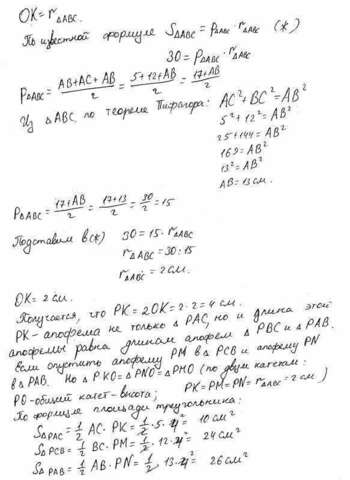 OK = r△ABC
По известной формуле S△ABC = P△ABC · r△ABC (*)
30 = P△ABC · r△ABC
P△ABC = (AB+AC+AB)/2 = (5+12+AB)/2 = (17+AB)/2
Из △ABC по теореме Пифагора: AC² + BC² = AB²
5² + 12² = AB²
25 + 144 = AB²
169 = AB²
13² = AB²
AB = 13 см.
P△ABC = (17+AB)/2 = (17+13)/2 = 30/2 = 15
Подставим в (*) 30 = 15 · r△ABC
r△ABC = 30 : 15
r△ABC = 2 см.
OK = 2 см.
Получается, что PK = 2OK = 2 · 2 = 4 см.
PK - апофема не только △PAC, но и длина этой
апофемы равна длинам апофем △PBC и △PAB.
если опустить апофему PM в △PCB и апофему PN
в △PAB. Но △PKO = △PNO = △PMO (по двум катетам:
PO - общий катет - высота; PK = PM = PN = r△ABC = 2 см)
По формуле площади треугольника:
S△PAC = 1/2 AC · PK = 1/2 · 5 · 4² = 10 см²
S△PCB = 1/2 BC · PM = 1/2 · 12 · 4² = 24 см²
S△PAB = 1/2 AB · PN = 1/2 · 13 · 4² = 26 см²